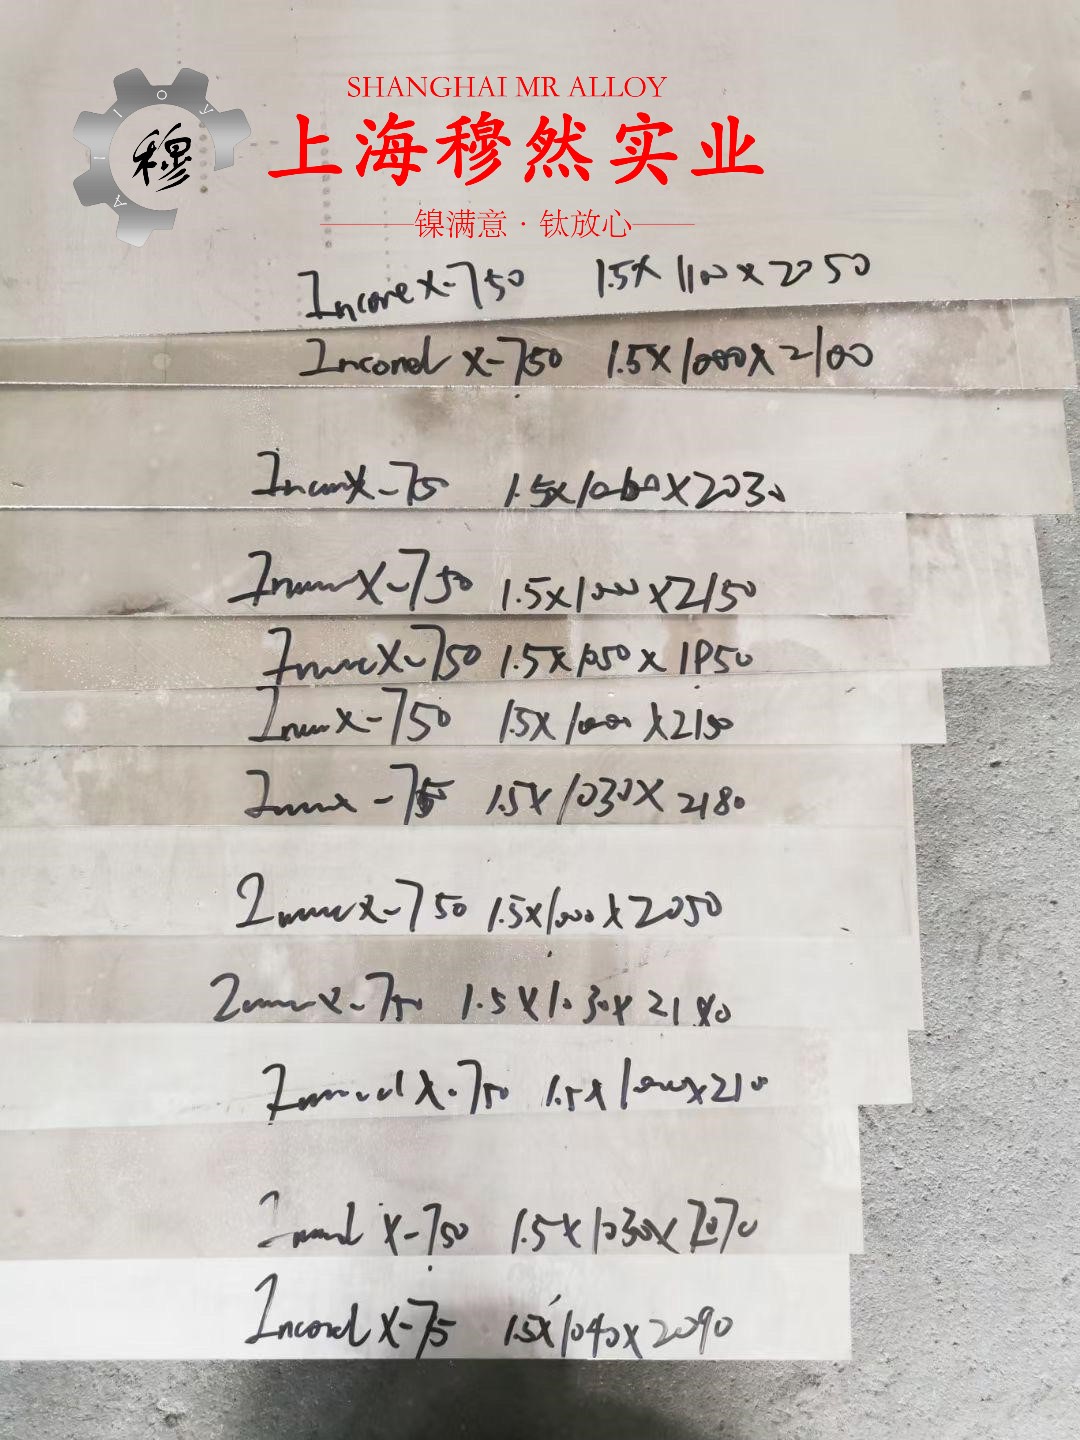 SHANGHAI MR ALLOY
上海穆然实业
穆
镍满意·钛放心
Incone X-750 1.5X 1100 X 2050
Inconel X-750 1.5X1000X2100
X-75 1.5X1060X2030
X-750 1.5X1000X2150
X-750 1.5X1050X1950
X-750 1.5X1000X2150
-75 1.5X1030X2180
X-750 1.5X1000X2050
X-750 1.5X1030X2180
X-750 1.5X1000X210
X-750 1.5X1030X2070
Inconel X-75 1.5X1040X2090